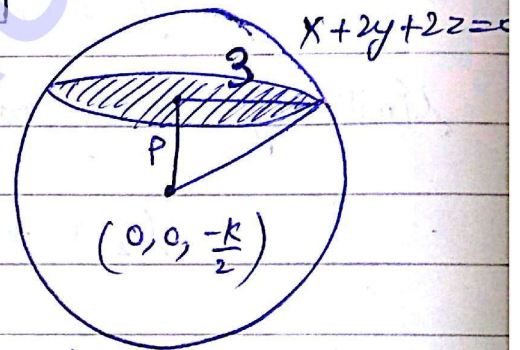 x+2y+2z=
3
P
(0,0,-k/2)